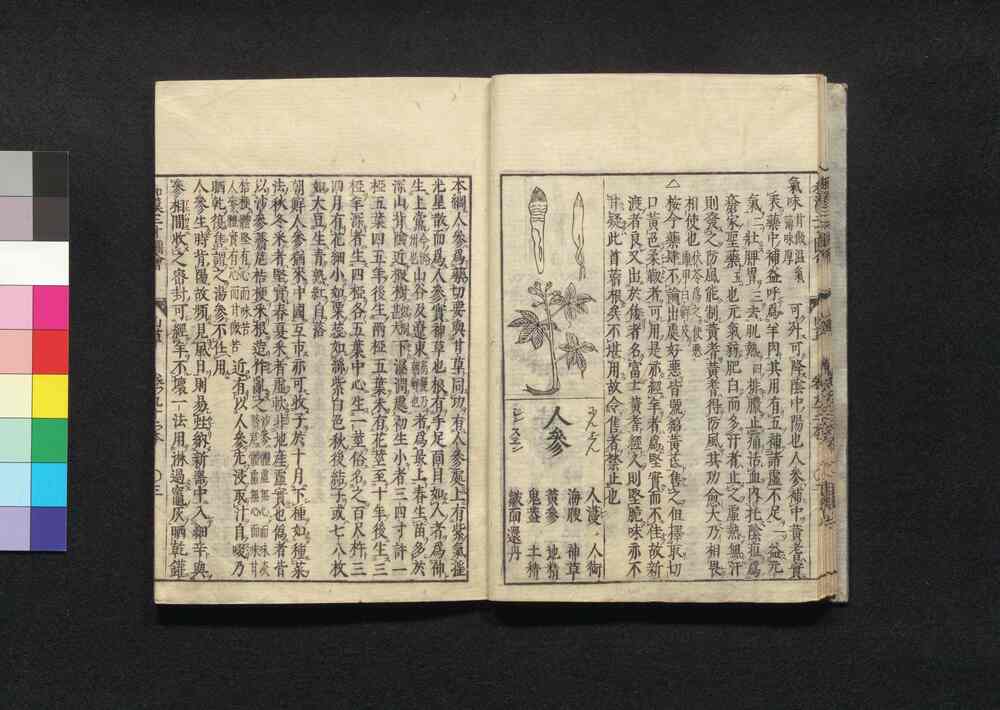 氣味 甘微温氣薄味厚 可升可降陰中陽也人參補中黃耆實
表藥中補益呼爲羊肉其用有五補諸虛不足一益元
氣二壯脾胃三去肌熱四排膿止痛活血內托陰疽爲
瘡家聖藥五也元氣弱肥白而多汗者止之虛熱無汗
則發之防風能制黃耆黃耆得防風其功愈大乃相畏
相使也 茯苓爲之使惡龜甲白鮮皮
△按今藥肆不論出處好惡皆號綿黃芪售之但擇取切
口黃色柔軟者可用是亦經年者爲堅實而不佳故新
渡者良又出於倭者名富士黃耆經久則堅脆味亦不
甘疑此苜蓿根矣不堪用故令售者禁止也
にんじん
人參
ジンスエン
人薓 人銜
海腴 神草
黃參 地精
鬼蓋 土精
皺面還丹
本綱人參爲藥切要與甘草同功有人參處上有紫氣搖
光星散而爲人參實神草也根有手足面目如人者爲神
生上黨今潞州也山谷及遼東高麗乃朝鮮也者爲最上春生苗多於
深山背陰近椵漆樹下濕潤處初生小者三四寸許一
椏五葉四五年後生兩椏五葉未有花莖至十年後生三
椏年深者生四椏各五葉中心生一莖俗名之百尺杵三
四月有花細小如粟蕊如絲紫白色秋後結子或七八枚
如大豆生青熟紅自落
朝鮮人參類來中國互市亦可收子於十月下種如種菜
法秋冬采者堅實春夏采者虛軟非地產虛實也僞者皆
以沙參薺苨桔梗采根造作亂之 沙參體虛無心而味淡薺苨體虛無心而味甘
桔梗體堅有心而味苦人參體實有心而甘微苦 近有以人參先浸取汁自啜乃
晒乾復售謂之湯參不任用
人參生時背陽故頻見風日則易蛀納新器中入細辛與
參相間收之密封可經年不壞一法用淋過竈灰晒乾罐